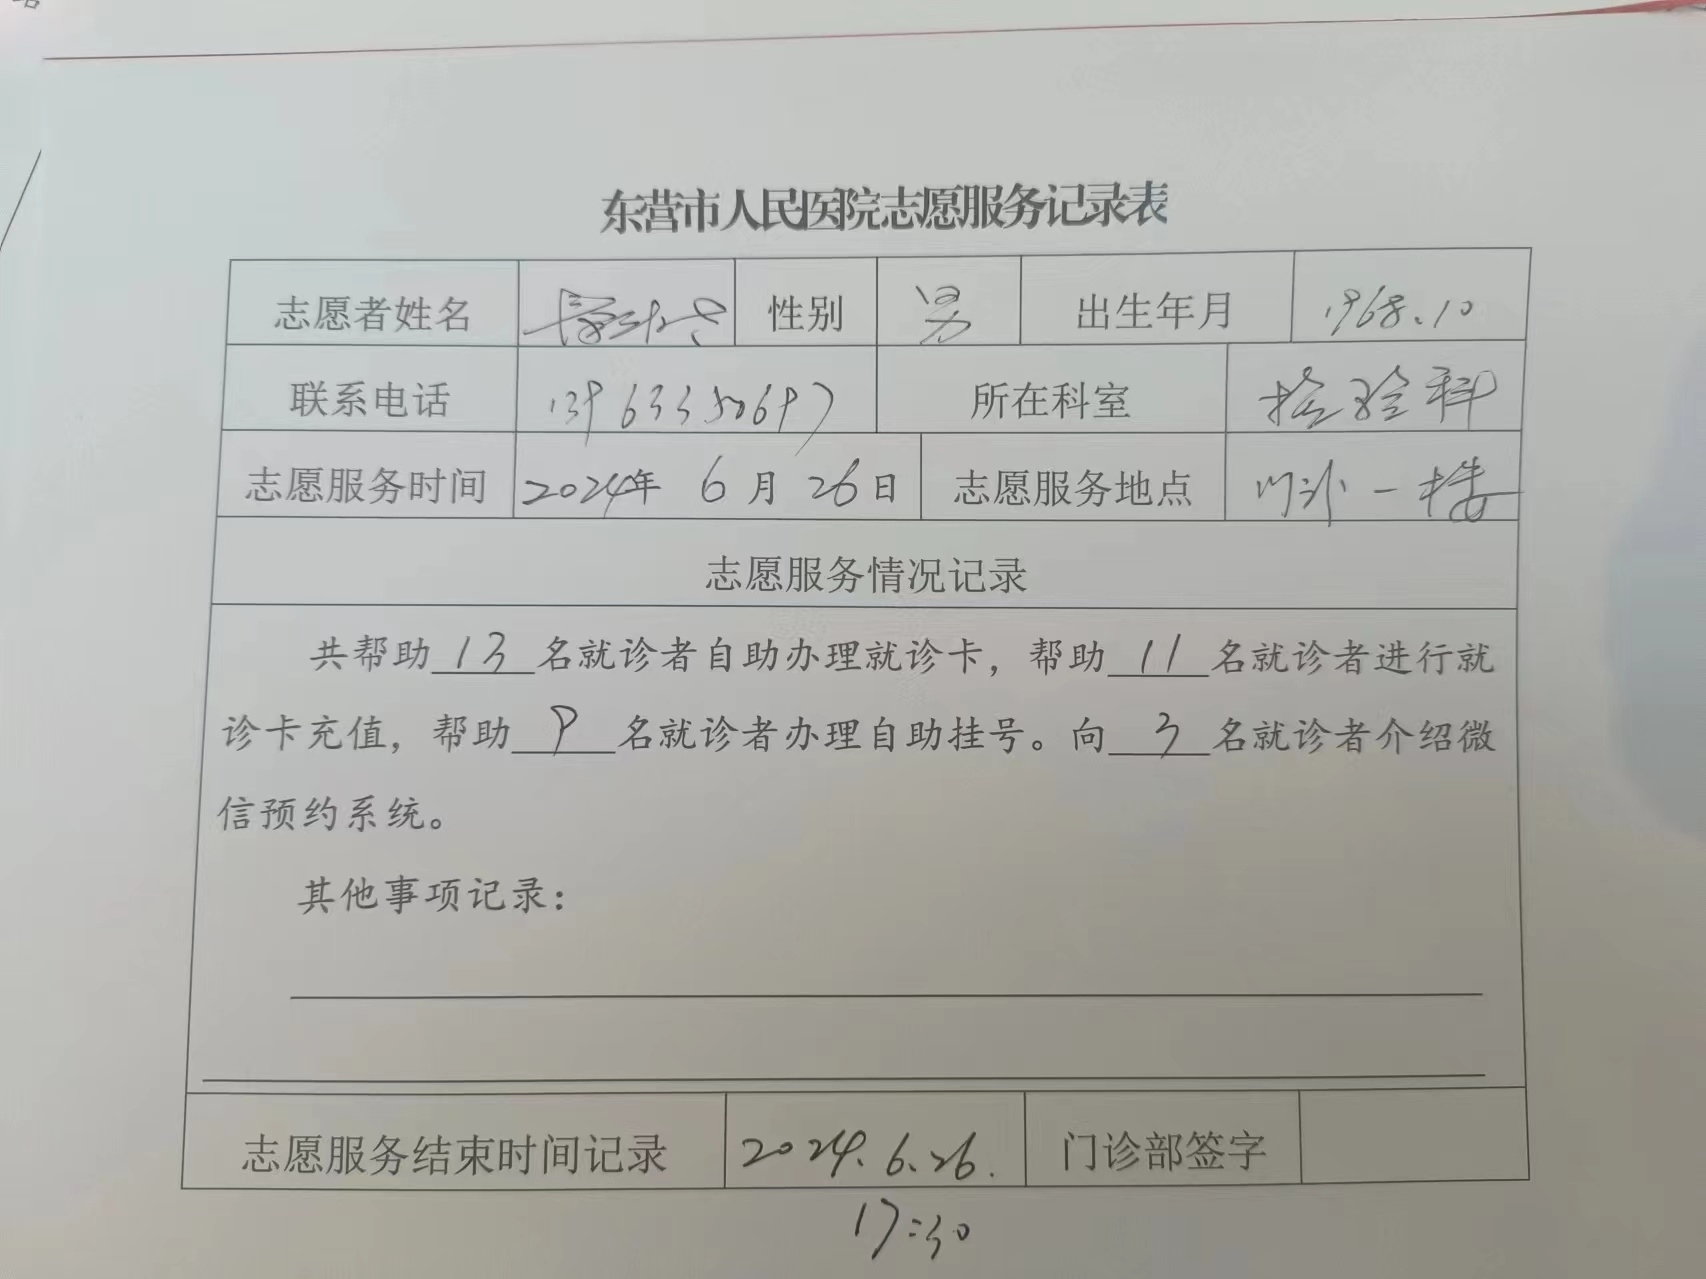 东营市人民医院志愿服务记录表
志愿者姓名 性别 男 出生年月 1968.10
联系电话 13963350697 所在科室 检验科
志愿服务时间 2024年 6月 26日 志愿服务地点 门诊一楼
志愿服务情况记录
共帮助13名就诊者自助办理就诊卡，帮助11名就诊者进行就
诊卡充值，帮助9名就诊者办理自助挂号。向3名就诊者介绍微
信预约系统。
其他事项记录：
志愿服务结束时间记录 2024.6.26. 门诊部签字
17:30